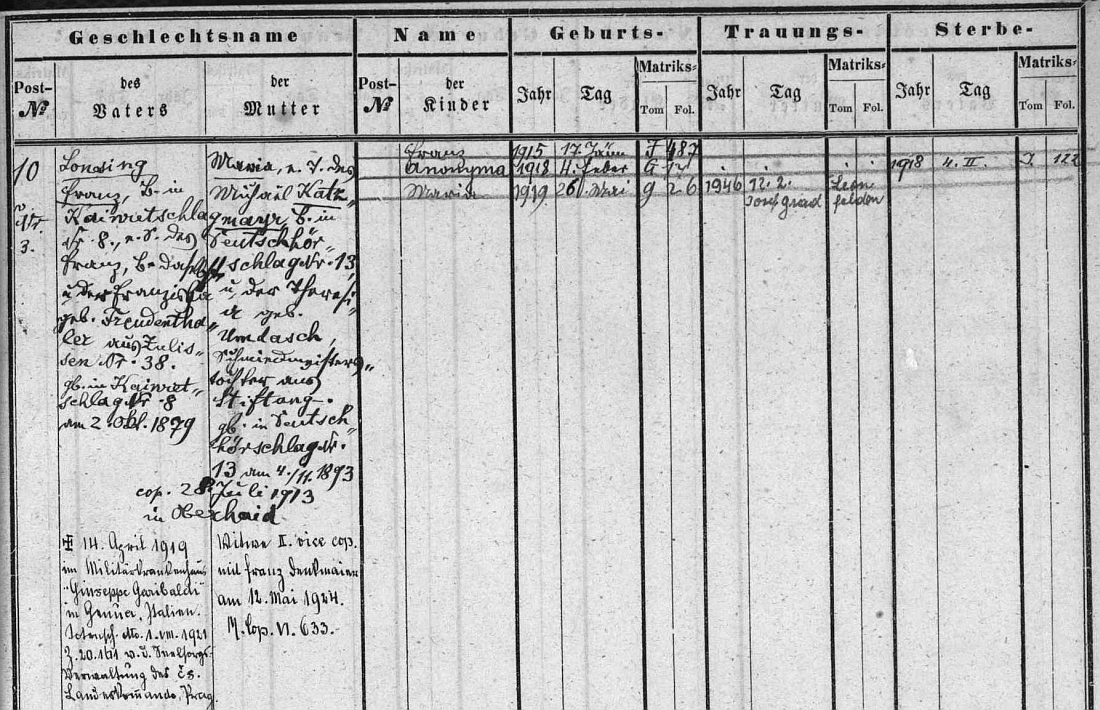 Geschlechtsname Name Geburts- Trauungs- Sterbe-
Post-№ des Vaters der Mutter Post-№ der Kinder Jahr Tag Matriks- Tom Fol. Jahr Tag Matriks- Tom Fol. Jahr Tag Matriks- Tom Fol.
Franz 1915 17. Jänn F 487
Anonyma 1918 4. Feber G 17 1918 4. II. 122
Maria 1919 26. Mai G 26 1946 12. 2. Leon
felden
10
Nr.
3.
Lonsing
Franz, B. in
Kainretschlag
Nr. 8., e. S. des
Franz, B. daselbst
u. der Franziska
geb. Freudentha„
ler aus Zulis„
sen Nr. 38.
gb. in Kainret„
schlag Nr. 8
am 2. Okt. 1879
Maria, e. T. des
Michael Katz„
mayr B. in
Deutschhör„
schlag Nr. 13
u. der Theresi„
a geb.
Umdasch,
Schmiedmeisters„
tochter aus
Stiftung.
gb. in Deutsch„
hörschlag Nr.
13 am 4./11. 1893
cop. 28. Juli 1913
in Oberhaid
✠ 14. April 1919
im Militärkrankenhaus
"Giuseppe Garibaldi"
in Genua, Italien.
Totensch. dto. 1. VIII. 1921
Z. 20.161 v. d. Seelsorgs-
Verwaltung des čs.
Landeskomando, Prag.
Witwe II. vice cop.
mit Franz Denkmaier
am 12. Mai 1924.
M. Cop. VI. 633.-